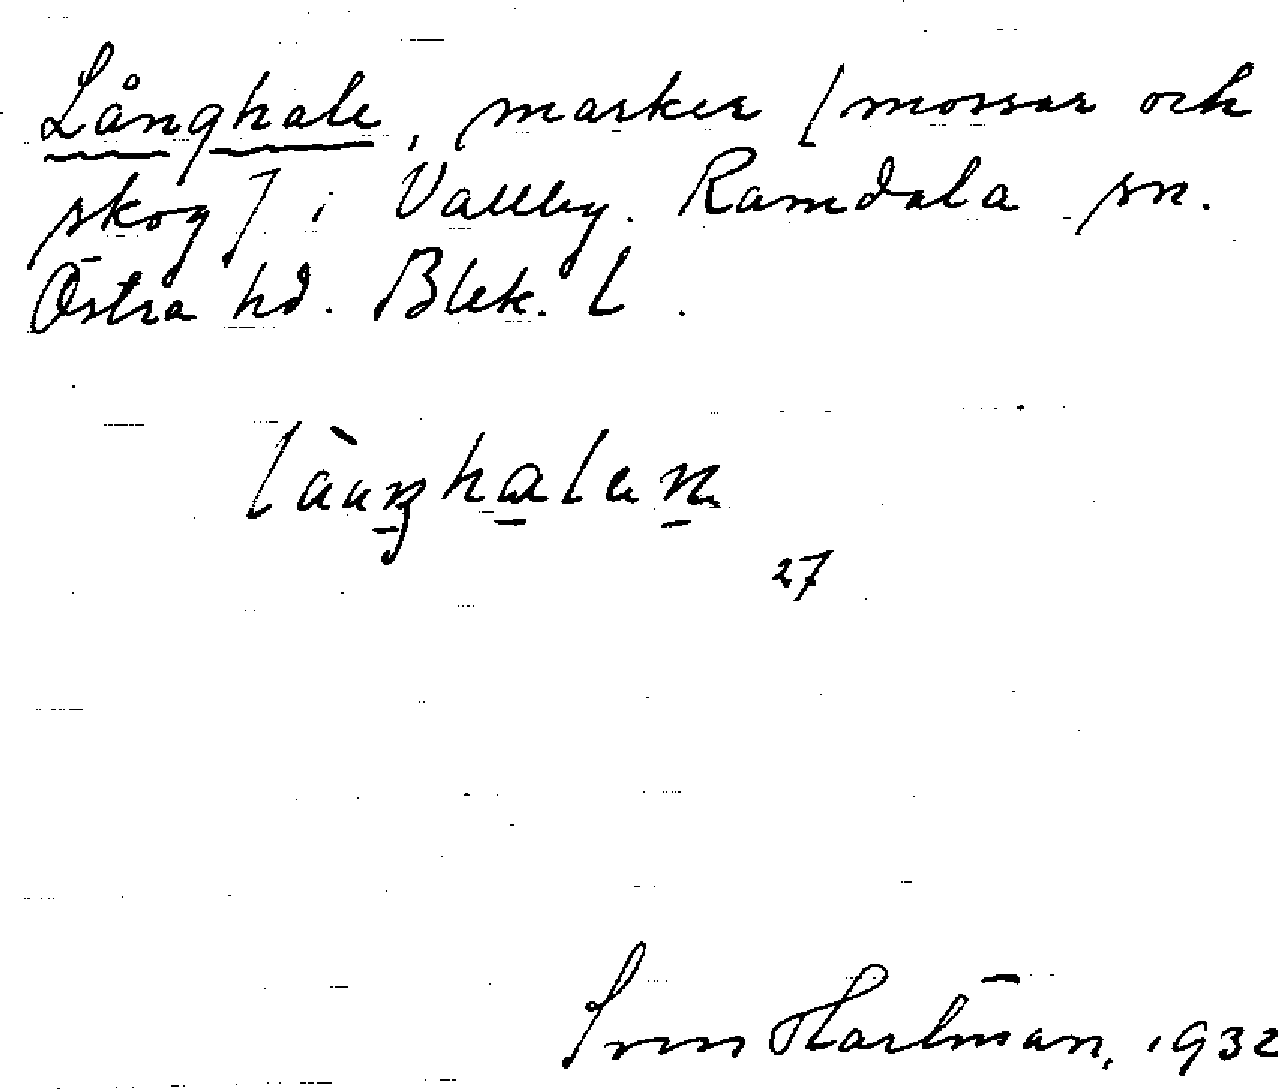 Långhale, marker [mossar och
skog] i Vallby. Ramdala sn.
Östra hd. Blek. l.
27
Sven Hartman, 1932